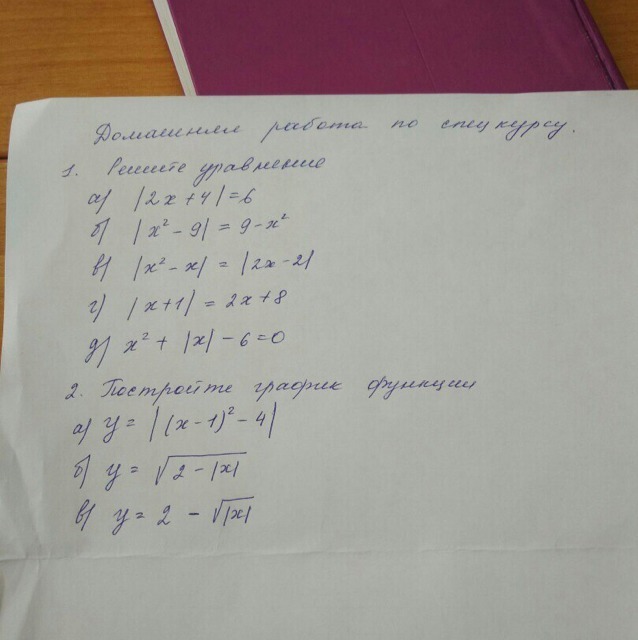 Домашняя работа по спецкурсу.
1. Решите уравнение
а) |2x+4|=6
б) |x²-9| = 9-x²
в) |x²-x| = |2x-2|
г) |x+1| = 2x+8
д) x² + |x| - 6=0
2. Постройте график функции
а) y = |(x-1)² - 4|
б) y = √(2-|x|)
в) y = 2 - √|x|